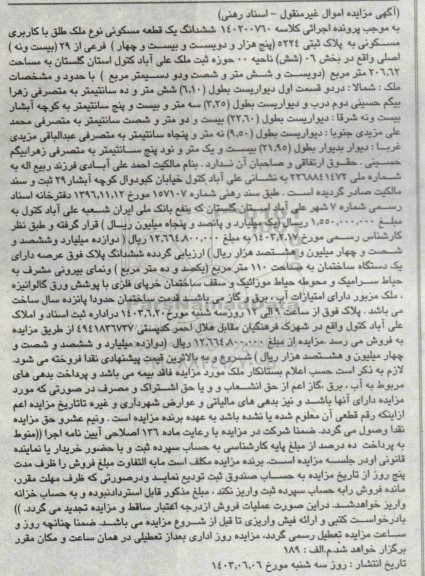 (آگهی مزایده اموال غیرمنقول - اسناد رهنی)
به موجب پرونده اجرائی کلاسه ۱۴۰۲۰۰۷۶۰ ششدانگ یک قطعه مسکونی نوع ملک طلق با کاربری
مسکونی به پلاک ثبتی ۵۲۲۴ (پنج هزار و دویست و بیست و چهار ) فرعی از ۲۹ (بیست ونه )
اصلی واقع در بخش ۰۶ (شش) ناحیه ۰۰ حوزه ثبت ملک علی آباد کتول استان گلستان به مساحت
۲۰۶.۶۲ متر مربع (دویست و شش متر و شصت ودو دسیمتر مربع ) با حدود و مشخصات
ملک : شمالا : دردو قسمت اول دیواریست بطول (۶،۱۰) شش متر و ده سانتیمتر به متصرفی زهرا
بیگم حسینی دوم درب و دیواریست بطول (۳،۲۵) سه متر و بیست و پنج سانتیمتر به کوچه آبشار
بیست ونه شرقا : دیواریست بطول (۲۲،۶۰) بیست و دو متر و شصت سانتیمتر به متصرفی محمد
علی مزیدی جنوبا : دیواریست بطول (۹،۵۰) نه متر و پنجاه سانتیمتر به متصرفی عبدالباقی مزیدی
غربا : دیوار بدیوار بطول (۲۱،۹۵) بیست و یک متر و نود پنج سانتیمتر به متصرفی زهرابیگم
حسینی . حقوق ارتفاقی و صاحبان آن ندارد . بنام مالکیت احمد علی آبادی فرزند ربیع اله به
شماره ملی ۲۲۶۸۸۴۱۴۷۲ به نشانی علی آباد کتول خیابان کبودوال کوچه آبشار ۲۹ ثبت و سند
مالکیت صادر گردیده است . طبق سند رهنی شماره ۱۵۷۱۰۷ مورخ ۱۳۹۶،۱۱،۱۲ دفترخانه اسناد
رسمی شماره ۷ شهر علی آباد استان گلستان که بنفع بانک ملی ایران شعبه علی آباد کتول به
مبلغ ۱،۵۵۰،۰۰۰،۰۰۰ ریال (یک میلیارد و پانصد و پنجاه میلیون ریال ) قرار گرفته و طبق نظر
کارشناس رسمی مورخ ۱۴۰۳،۲،۱۷ به مبلغ ۱۲،۶۶۴،۸۰۰،۰۰۰ ریال ( دوازده میلیارد وششصد و
شصت و چهار میلیون و هشتصد هزار ریال ) ارزیابی گردده ششدانگ پلاک فوق عرصه دارای
یک دستگاه ساختمان به مساحت ۱۱۰ متر مربع (یکصد و ده متر مربع ) ونمای بیرونی مشرف به
حیاط سرامیک و محوطه حیاط موزائیک و سقف ساختمان خرپای فلزی با پوشش ورق گالوانیزه
، ملک مزبور دارای امتیازات آب ، برق و گاز می باشد ، قدمت ساختمان حدودا پانزده سال ساخت
می باشد . پلاک فوق از ساعت ۹ الی ۱۲ روزسه شنبه مورخ ۱۴۰۳،۶،۲۰ دراداره ثبت اسناد و املاک
علی آباد کتول واقع در شهرک فرهنگیان مقابل هلال احمر کدپستی ۴۹۴۱۸۳۶۷۳۷ از طریق مزایده
به فروش می رسد .مزایده از مبلغ ۱۲،۶۶۴،۸۰۰،۰۰۰ ریال (دوازده میلیارد و ششصد و شصت و
چهار میلیون و هشتصد هزار ریال ) شروع و به بالاترین قیمت پیشنهادی نقدا فروخته می شود.
لازم به ذکر است حسب اعلام بستانکار ملک مورد مزایده فاقد بیمه می باشد و پرداخت بدهی های
مربوط به آب ، برق ،گاز اعم از حق انشعاب و و یا حق اشتراک و مصرف در صورتی که مورد
مزایده دارای آنها باشد و نیز بدهی های مالیاتی و عوارض شهرداری و غیره تاتاریخ مزایده اعم
ازاینکه رقم قطعی آن معلوم شده یا نشده باشد به عهده برنده مزایده است . ونیم عشرو حق مزایده
نقدا وصول می گردد. ضمنا شرکت در مزایده با رعایت ماده ۱۳۶ اصلاحی آیین نامه اجرا ((منوط
به پرداخت ده درصد از مبلغ پایه کارشناسی به حساب سپرده ثبت و با حضور خریدار یا نماینده
قانونی اودر جلسه مزایده است. برنده مزایده مکلف است مابه التفاوت مبلغ فروش را ظرف مدت
پنج روز از تاریخ مزایده به حساب صندوق ثبت تودیع نماید ودرصورتی که ظرف مهلت مقرر،
مانده فروش رابه حساب سپرده ثبت واریز نکند ، مبلغ مذکور قابل استردادنبوده و به حساب خزانه
واریز خواهدشد. دراین صورت عملیات فروش ازدرجه اعتبار ساقط و مزایده تجدید می گردد. ))
بادرخواست کتبی و ارائه فیش واریزی تا قبل از شروع مزایده می باشد. ضمنا چنانچه روز و
ساعت مزایده تعطیل رسمی گردد، مزایده روز اداری بعداز تعطیلی در همان ساعت و مکان مقرر
برگزار خواهد شد.م.الف : ۱۸۹
تاریخ انتشار : روز سه شنبه مورخ ۱۴۰۳،۰۶،۰۶